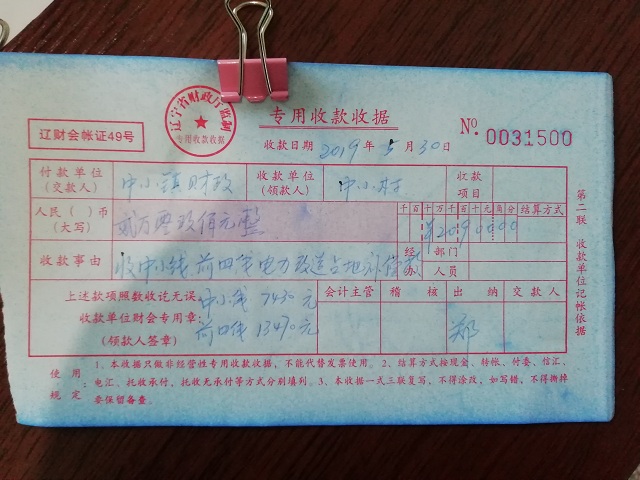 辽宁省财政厅监制
专用收款收据
专用收款收据
辽财会帐证49号
收款日期 2019 年 5 月 30 日
No. 0031500
付款单位(交款人) 中小镇财政 收款单位(领款人) 中小村 收款项目
人民( )币(大写) 贰万零玖佰元整 千百十万千百十元角分 结算方式
¥2090000
收款事由 收中小线、前田线电力改造占地补偿款 经办 部门 人员
上述款项照数收讫无误 中小线 7430元 会计主管 稽核 出纳 交款人
收款单位财会专用章: 前田线 13470元
(领款人签章) 郑
第二联 收款单位记帐依据
使用规定 1、本收据只做非经营性专用收款收据,不能代替发票使用。2、结算方式按现金、转帐、付委、信汇、
电汇、托收承付、托收无承付等方式分别填列。3、本收据一式三联复写,不得涂改,如写错,不得撕掉
要保留备查。